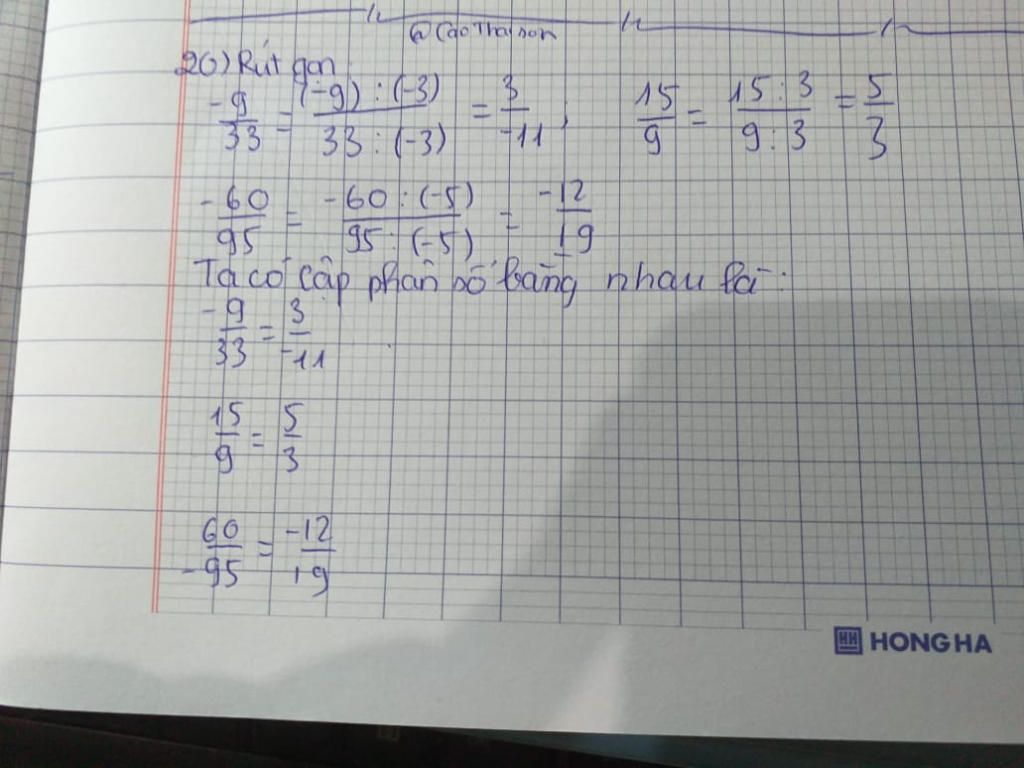 @CaoThaiSon
20) Rút gọn
-9/33 = (-9) : (-3)/33 : (-3) = 3/-11 ; 15/9 = 15 : 3/9 : 3 = 5/3
-60/95 = -60 : (-5)/95 : (-5) = -12/19
Ta có cặp phân số bằng nhau là :
-9/33 = 3/-11
15/9 = 5/3
60/-95 = -12/19
HH HONG HA